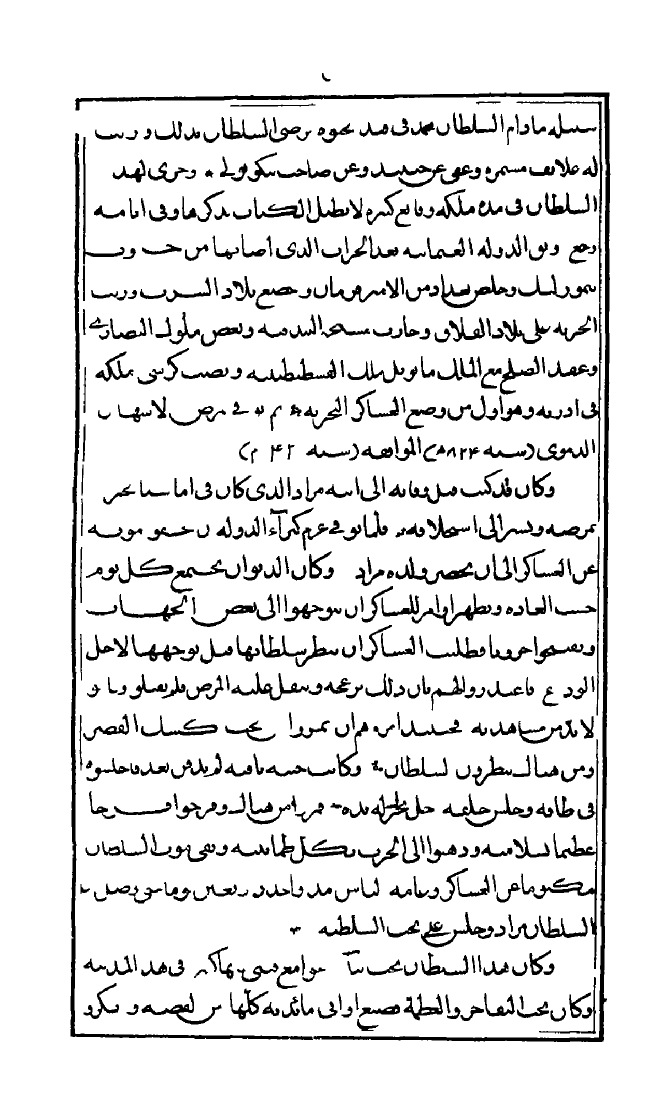 سبيله مادام السلطان محمد فى قيد الحيوه فرضى السلطان بذلك ورتب
له علايف مستمرة وعفى عن جنيد وعن صاحب * وجرى لهذا
السلطان فى مدة ملكه وقايع كثيرة لا نطيل الكتاب بذكرها وفى ايامه
رجع رونق الدولة العثمانية بعد الخراب الذى اصابها من حروب
تيمورلنك وخلص بغداد من الامير وخضع بلاد السرب ورتب
الجزية على بلاد الفلاق وحارب مشيخة البندقية وبعض ملوك النصارى
وعقد الصلح مع الملك مانويل ملك القسطنطينية ونصب كرسى مملكته
فى ادرنه وهو اول من وضع العساكر البحرية * ثم توفى فى مرض الاسهال
الدموى (سنة ٨٢٤ه) الموافقة (سنة ١٤٢ م)
وكان قد كتب قبل وفاته الى ابنه مراد الذى كان فى اماسيا يخبره
بمرضه ويشير الى استخلافه * فلما توفى عزم كبرآء الدولة ان يخفو موته
عن العساكر الى ان يحضر ولده مراد وكان الديوان يجتمع كل يوم
حسب العادة وتظهر اوامر للعساكر ان يتوجهوا الى بعض الجهات
ويفتحوا حروبا فطلبت العساكر ان تنظر سلطانها قبل توجهها لاجل
الوداع فاعتذروا لهم بان ذلك يزعجه ويثقل عليه المرض فلم يقبلو وقالو
لا بد من مشاهدته فحينئذ امروهم ان يمروا تحت كشك القصر
ومن هناك ينظرون السلطان * وكانت جثته باقية لم تدفن بعد فاجلسوه
فى طاقة وجلس خلفه رجل يحرك له يده * فمروا من هناك وفرحوا فرحا
عظيما بسلامته وذهبوا الى الحرب بكل طمانينة وبقى موت السلطان
مكتوما عن العساكر وعامة الناس مدة واحد واربعين يوما حتى وصل
السلطان مراد وجلس على تخت السلطنة *
وكان هذا السلطان يحب بنآء الجوامع فى هذه المدينة
وكان يحب التفاخر والعظمة فصنع اوانى مائدته كلها من الفضة